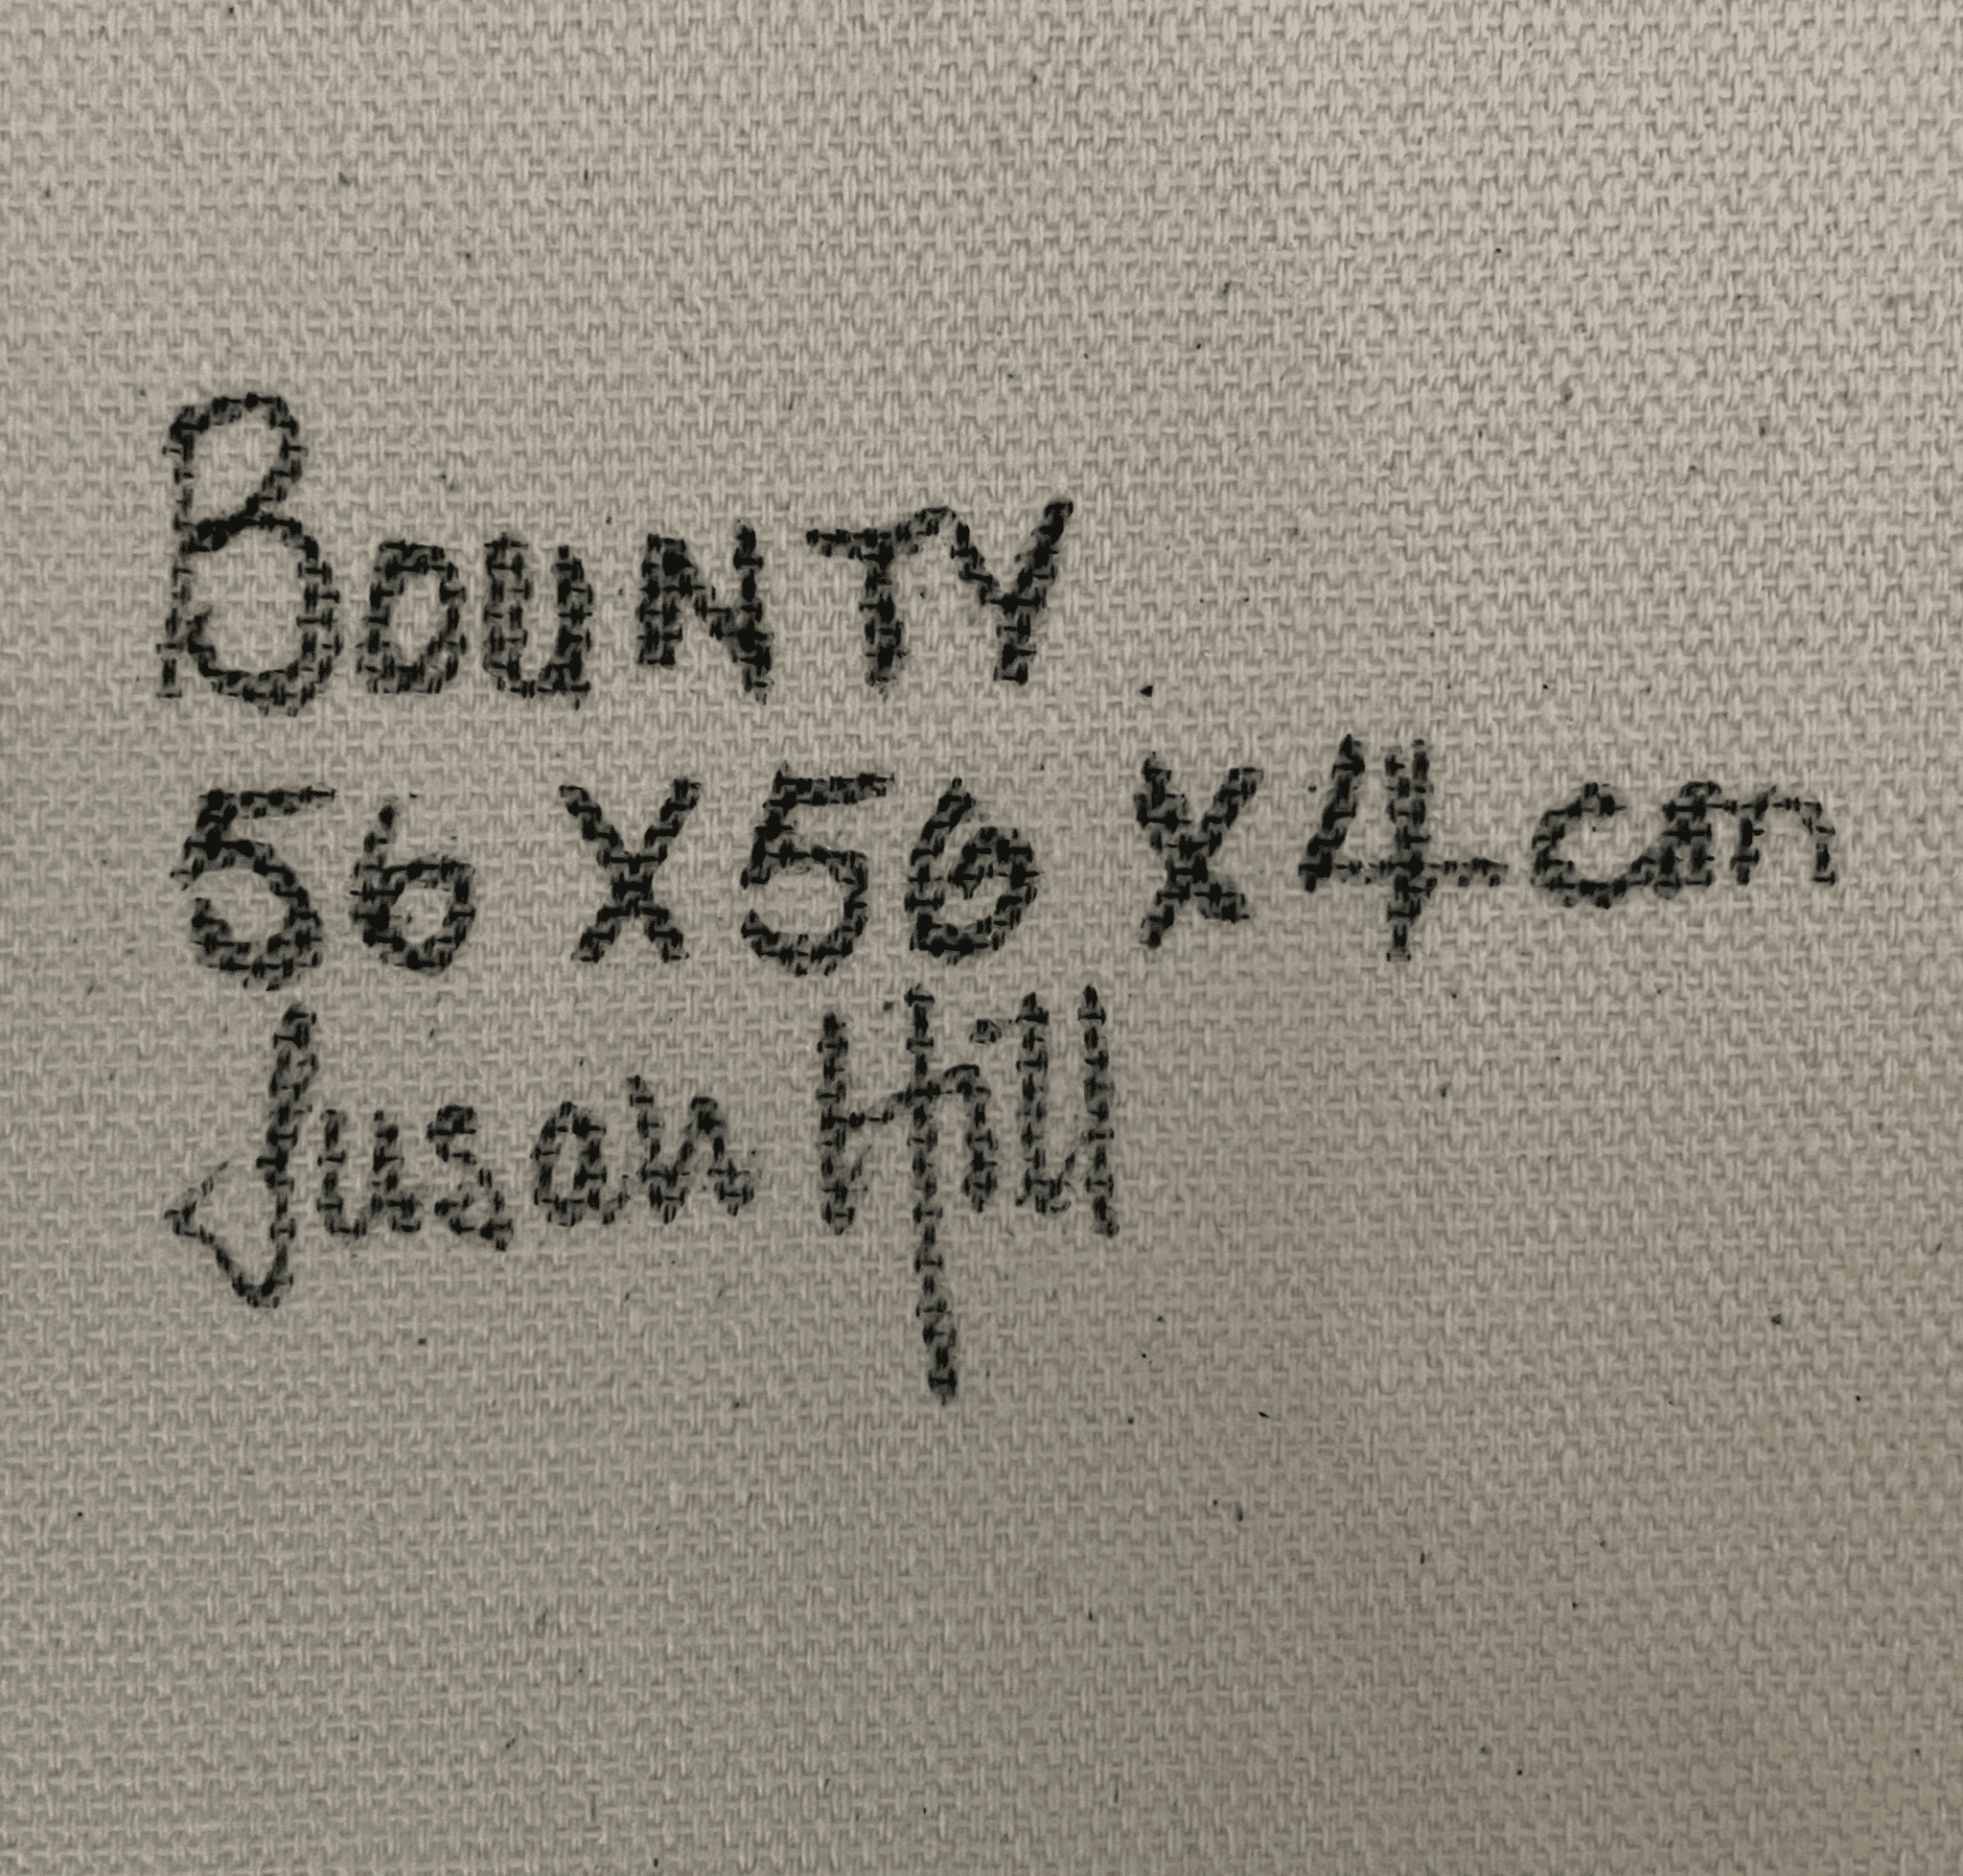 BOUNTY
56 X 56 X 4 cm
Susan Hill